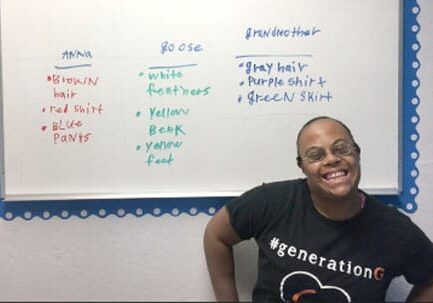 ANNA
• BROWN
hair
• red shirt
• BLUE
PANTS
goose
• white
feathers
• yellow
Beak
• yellow
feet
grandmother
• gray hair
• Purple shirt
• green skirt
#generationG